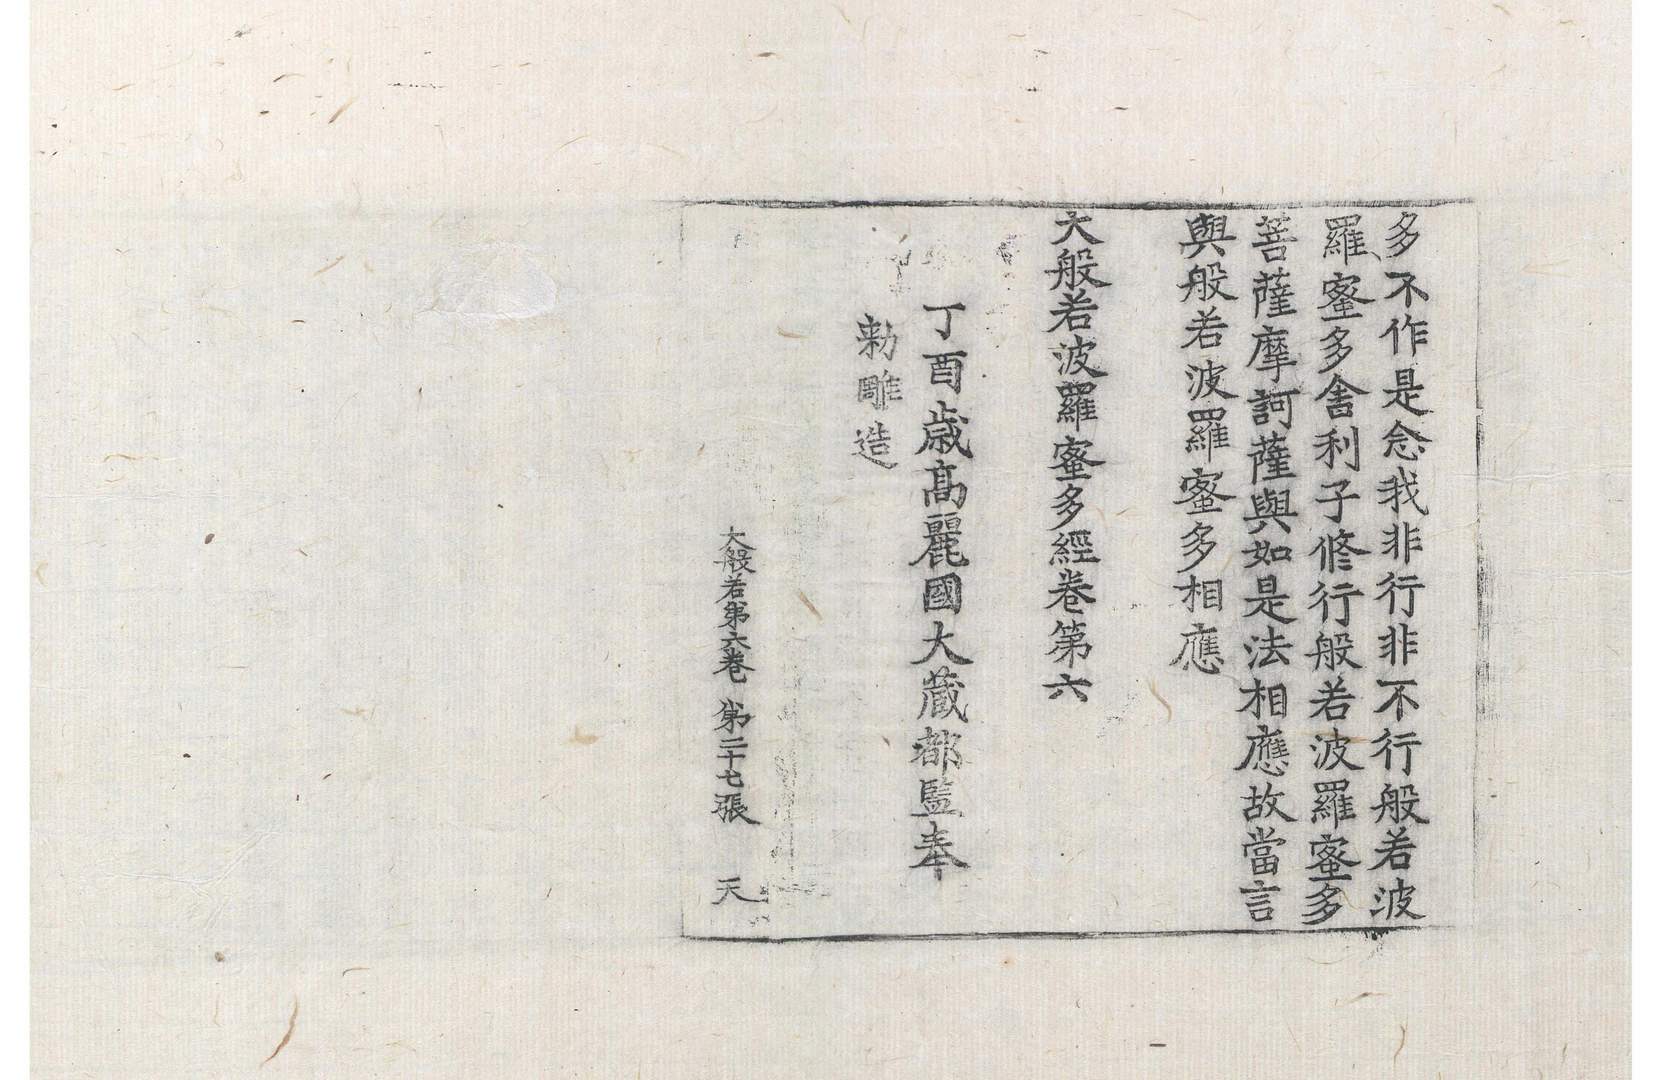 多不作是念我非行非不行般若波
羅蜜多舍利子修行般若波羅蜜多
菩薩摩訶薩與如是法相應故當言
與般若波羅蜜多相應
大般若波羅蜜多經卷第六
丁酉歲高麗國大藏都監奉
勅雕造
大般若第六卷 第二十七張 天